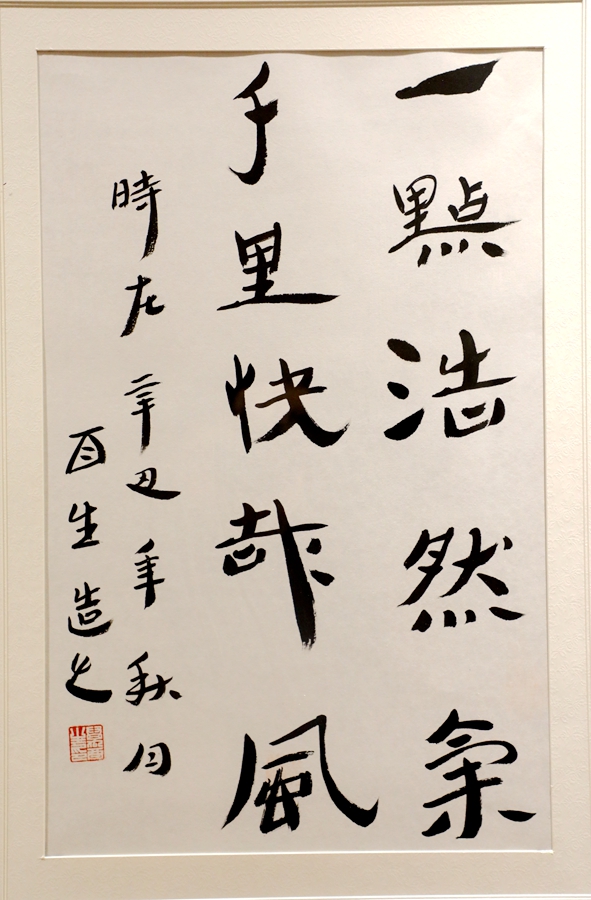 一點浩然氣
千里快哉風
時在辛丑年秋月
百生造之